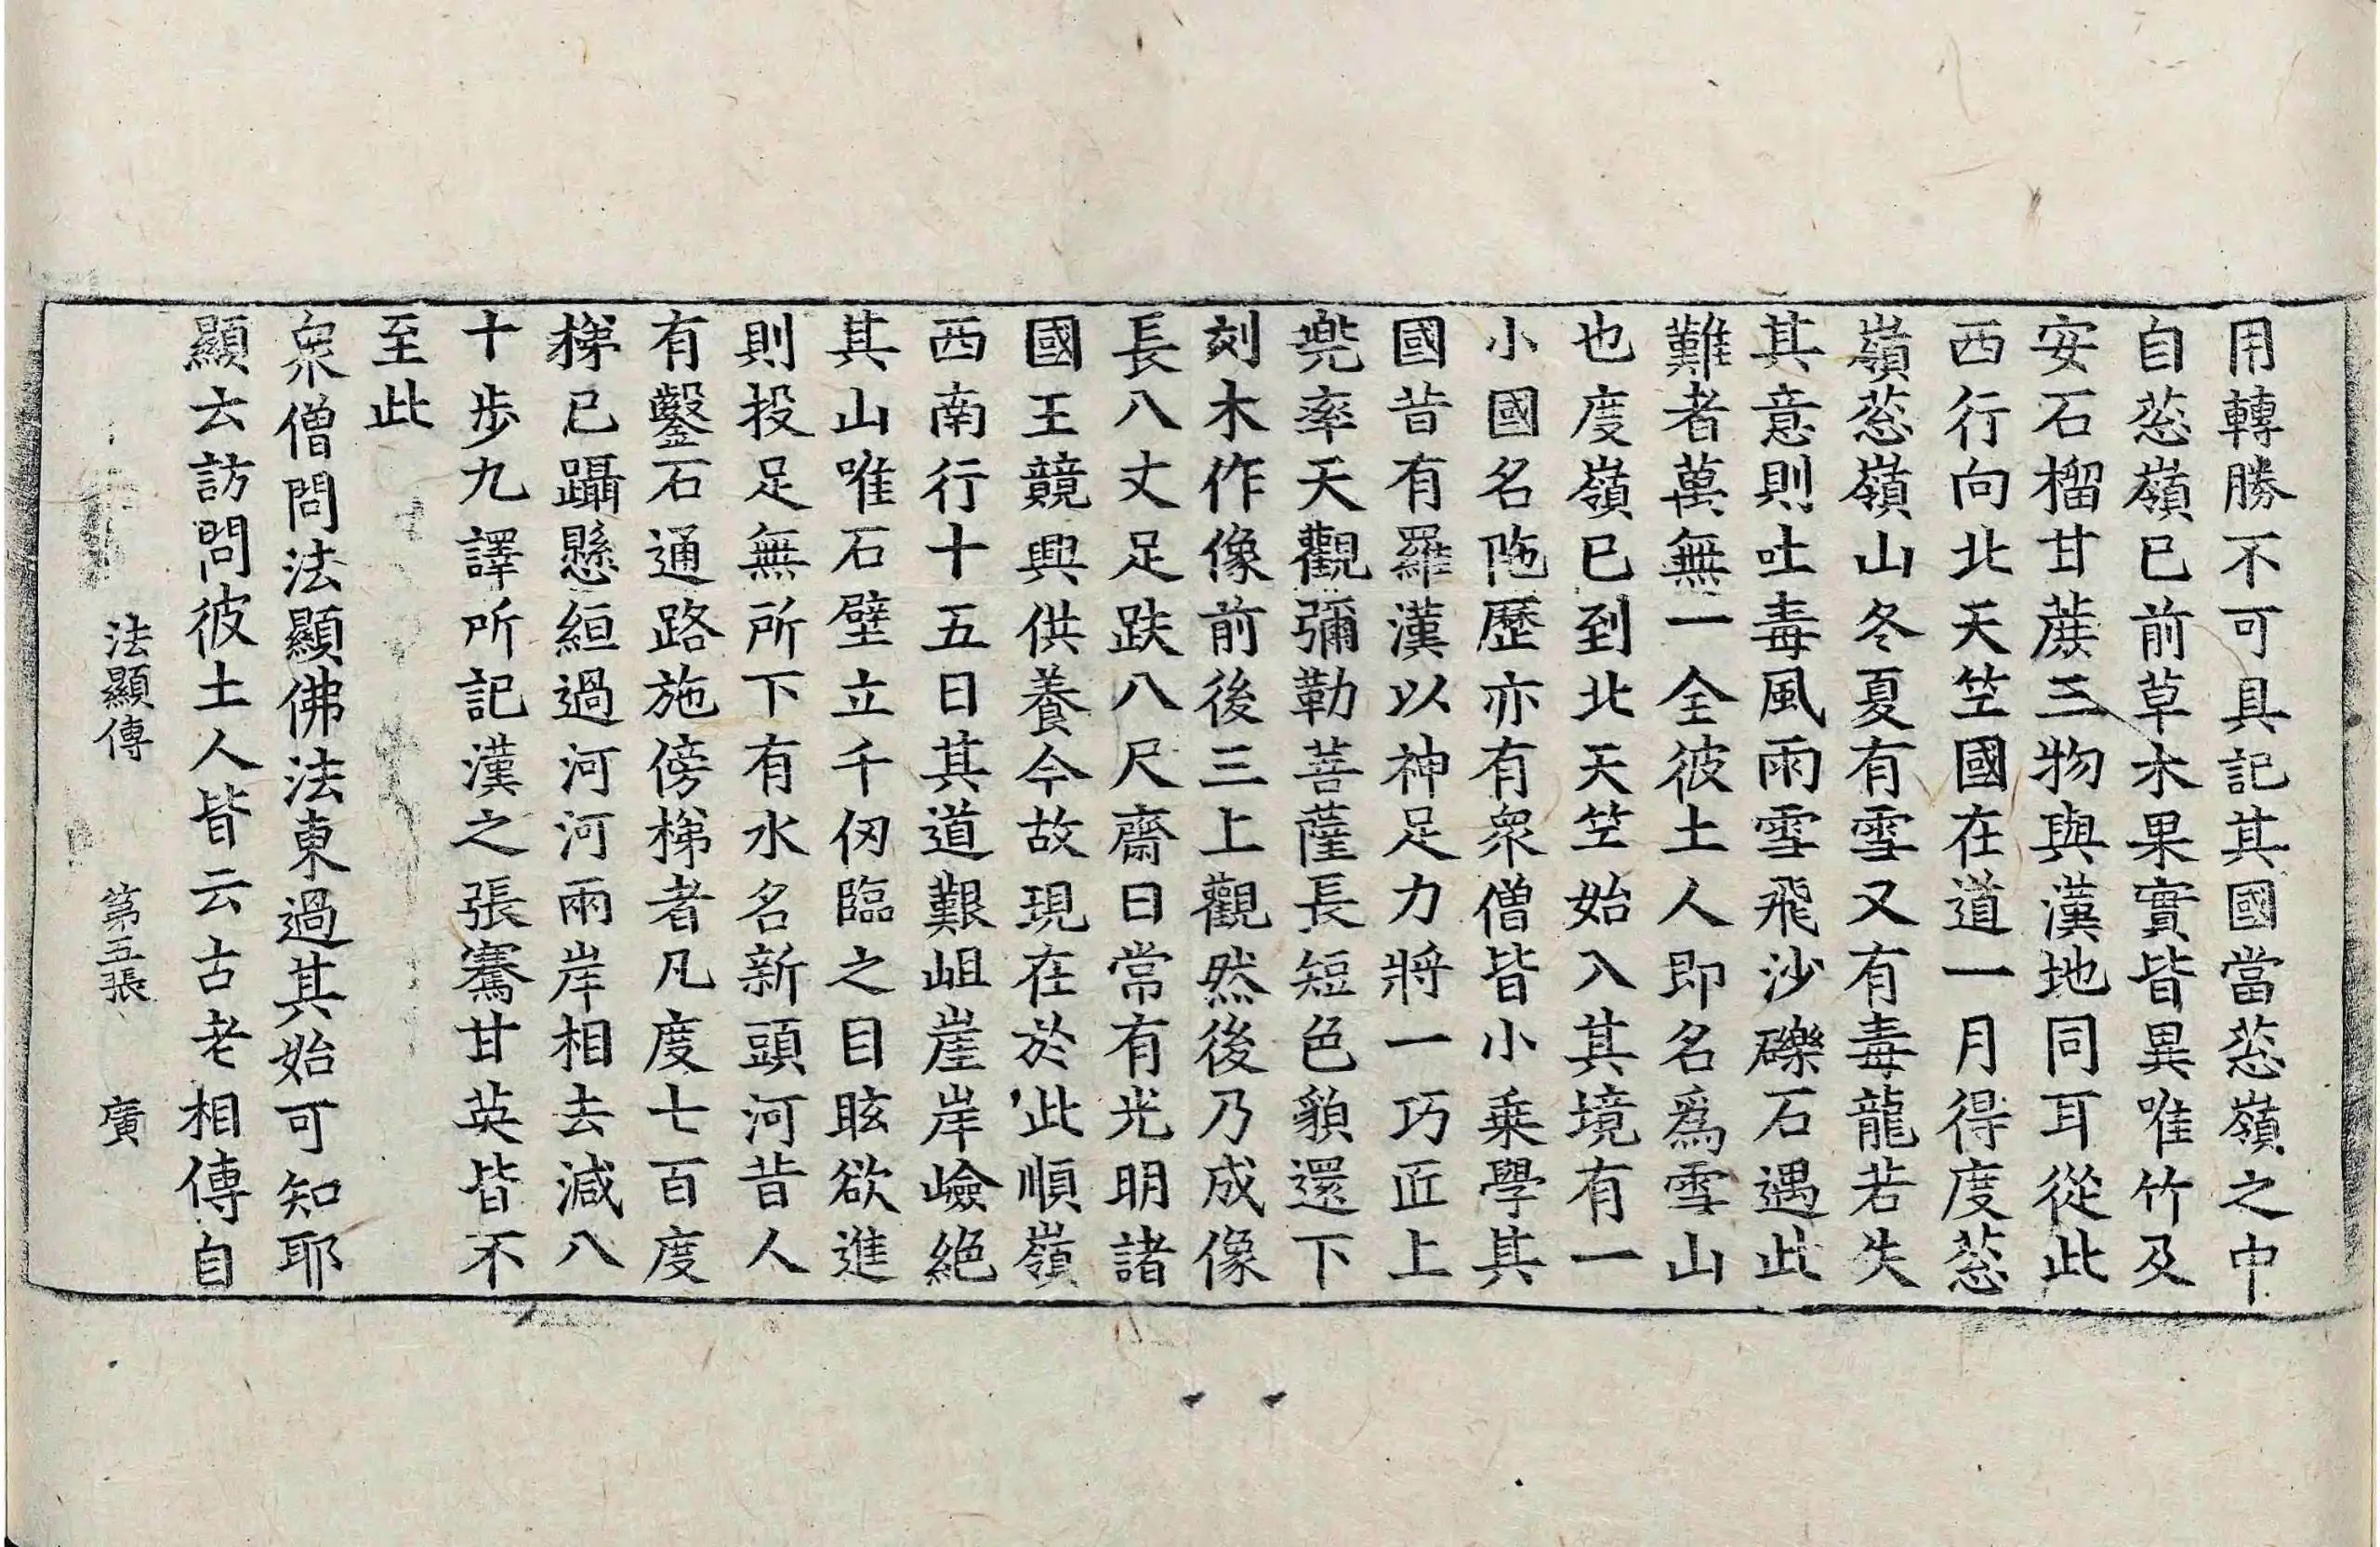 用轉勝不可具記其國當葱嶺之中
自葱嶺已前草木果實皆異唯竹及
安石榴甘蔗三物與漢地同耳從此
西行向北天竺國在道一月得度葱
嶺葱嶺山冬夏有雪又有毒龍若失
其意則吐毒風雨雪飛沙礫石遇此
難者萬無一全彼土人即名爲雪山
也度嶺已到北天竺始入其境有一
小國名陁歷亦有衆僧皆小乗學其
國昔有羅漢以神足力將一巧匠上
兜率天觀彌勒菩薩長短色貌還下
刻木作像前後三上觀然後乃成像
長八丈足趺八尺齋日常有光明諸
國王競興供養今故現在於此順嶺
西南行十五日其道艱岨崖岸嶮絕
其山唯石壁立千仞臨之目眩欲進
則投足無所下有水名新頭河昔人
有鑿石通路施傍梯者凡度七百度
梯已躡懸絙過河河兩岸相去減八
十步九譯所記漢之張騫甘英皆不
至此
衆僧問法顯佛法東過其始可知耶
顯云訪問彼土人皆云古老相傳自
法顯傳 第五張 廣